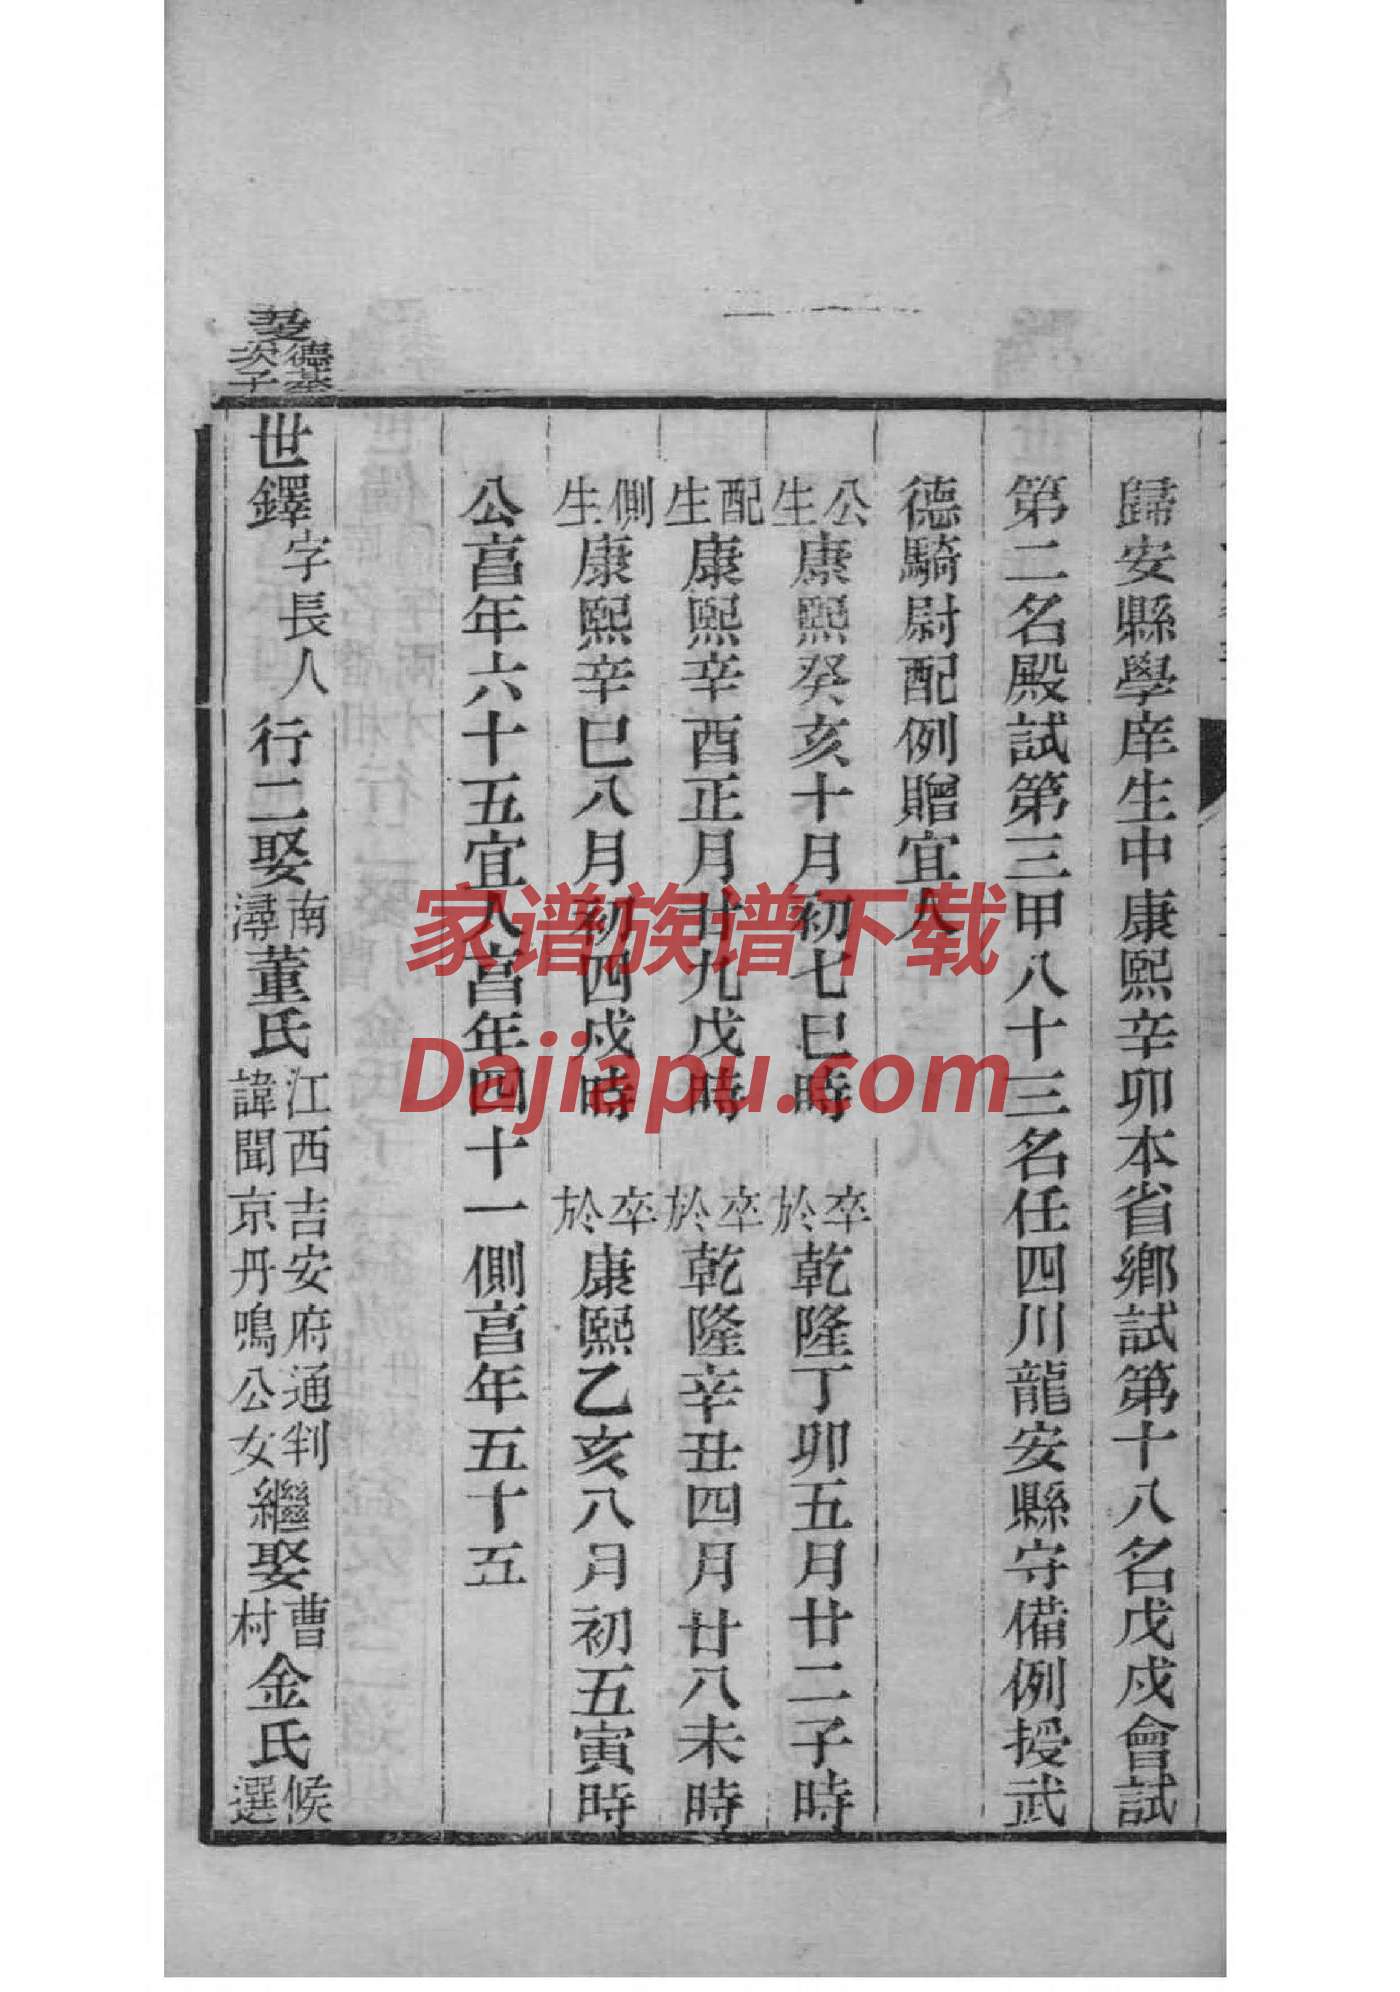 歸安縣學庠生中康熙辛卯本省鄉試第十八名戊戌會試
第二名殿試第三甲八十三名任四川龍安縣守備例授武
德騎尉配例贈宜人
公生康熙癸亥十月初七巳時 卒於乾隆丁卯五月廿二子時
配生康熙辛酉正月廿九戊時 卒於乾隆辛丑四月廿八未時
側生康熙辛巳八月初四戌時 卒於康熙乙亥八月初五寅時
公亯年六十五宜人亯年四十一側亯年五十五
德基次子
世鐸字長人行二娶南潯董氏江西吉安府通判諱聞京丹鳴公女繼娶曹村金氏候選
家谱族谱下载
Dajiapu.com